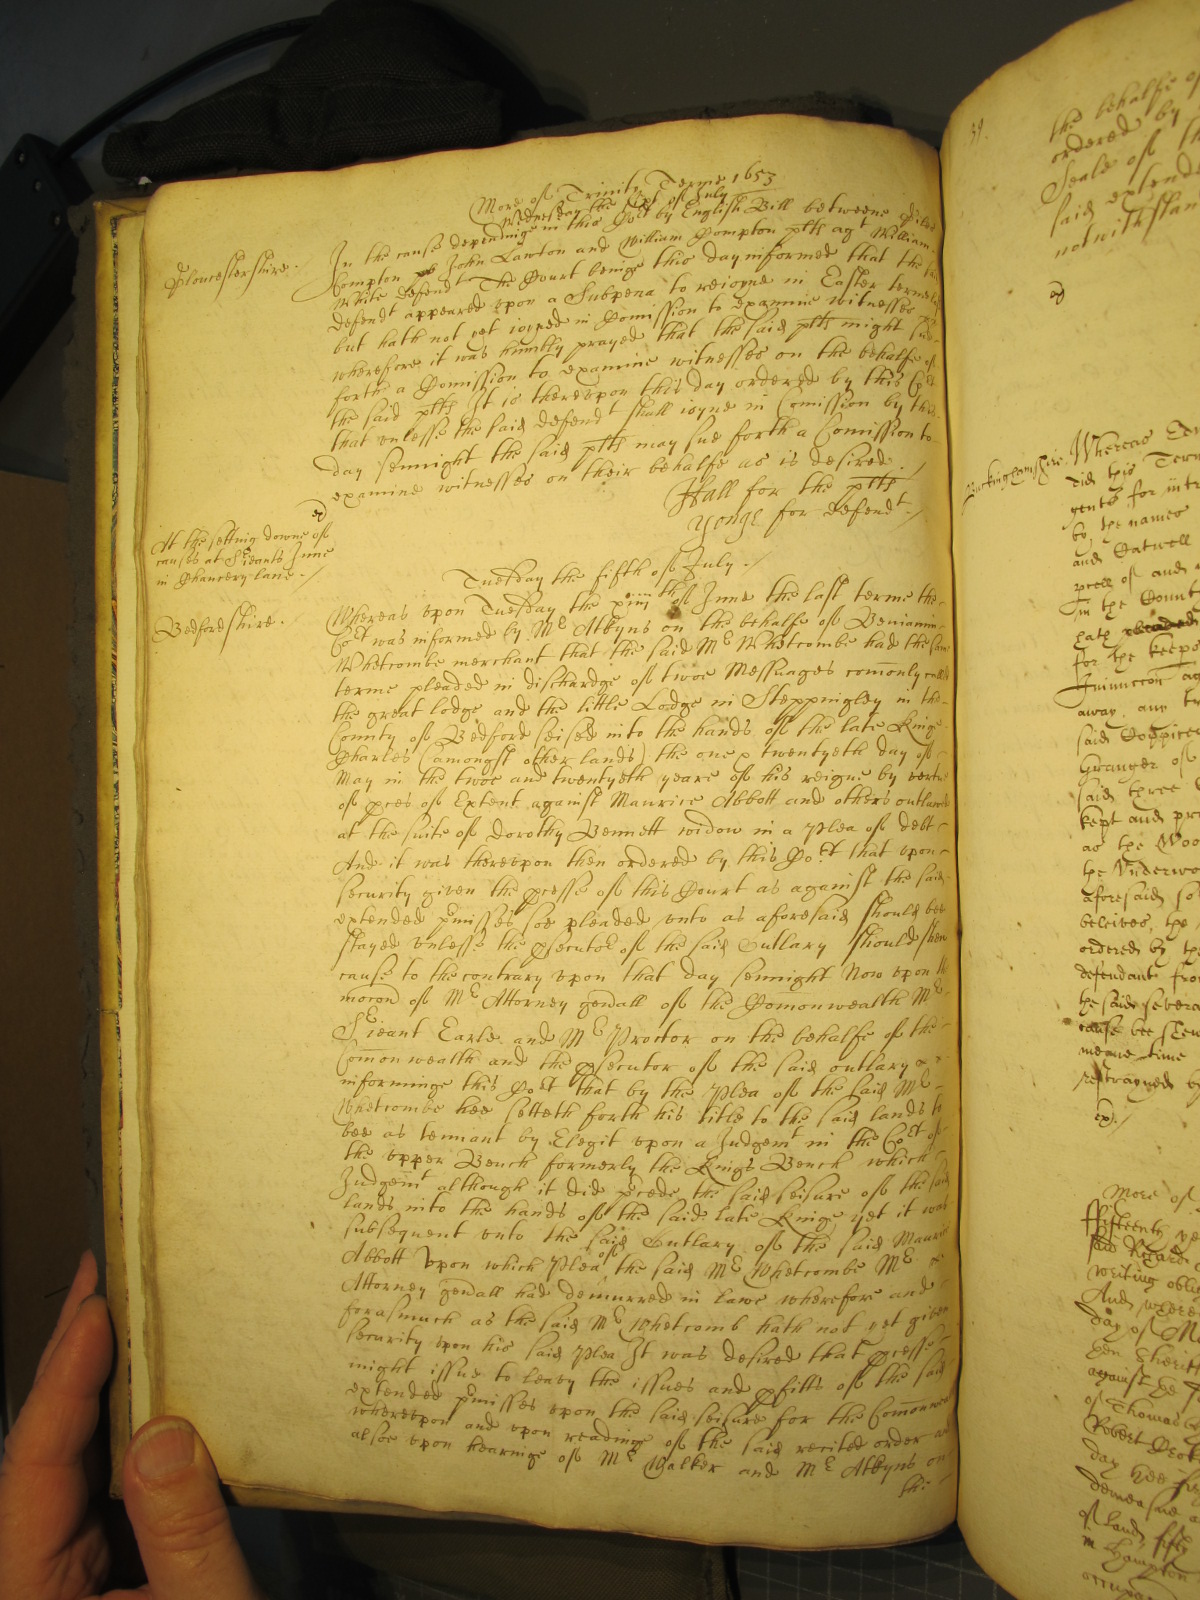 More of Trinity Terme 1653
Wednesday the of July
Gloucestershire. In the cause dependinge in this Court by English Bill betweene Giles
Compton John Lawton and William Compton plts agt William
White Defendt The Court beinge this day informed that the said
defendt appeared upon a Subpena to rejoyne in Easter terme last
but hath not yet joyned in Comission to examine witnesses
wherefore it was humbly prayed that the said plts might sue
forth a Comission to examine witnesses on the behalfe of
the said plts It is thereupon this day ordered by this Cort
that unlesse the said defendt shall joyne in Comission by this
day sennight the said plts may sue forth a Comission to
examine witnesses on their behalfe as is desired /
Hall for the plts
Yonge for defendt /
At the setting downe of
causes at Sieants Inne
in Chancery lane /
Tuesday the fifth of July /
Bedfordshire. Whereas upon Tuesday the xiiijth of June the last terme the
Cort was informed by Mr Atkyns on the behalfe of Beniamin
Whetcombe merchant that the said Mr Whetcombe had the same
terme pleaded in dischardge of twoe Messuages comonly called
the great lodge and the little Lodge in Steppingley in the
County of Bedford seised into the hands of the late Kinge
Charles (amongst other lands) the one & twentyeth day of
May in the twoe and twentyeth yeare of his reigne by vertue
of pces of Extent against Maurice Abbott and others outlawed
at the suite of Dorothy Bennett widow in a Plea of debt
And it was thereupon then ordered by this Cort that upon
security given the pcesse of this Court as against the said
extended pmisses soe pleaded unto as aforesaid should bee
stayed unlesse the psecutor of the said Outlary should shew
cause to the contrary upon that day sennight Now upon the
mocon of Mr Attorney gendall of the Comonwealth Mr
Sieant Earle and Mr Proctor on the behalfe of the
Comonwealth and the psecutor of the said outlary
informinge this Cort that by the Plea of the said Mr
Whetcombe hee setteth forth his title to the said lands to
bee as tennant by Elegit upon a Judgemt in the Cort of
the upper Bench formerly the Kings Bench which
Judgemt although it did pcede the said seisure of the said
lands into the hands of the said late Kinge yet it was
subsequent unto the said Outlary of the said Maurice
Abbott Upon which Plea of the said Mr Whetcombe Mr
Attorney gendall had demurred in lawe wherefore and
forasmuch as the said Mr Whetcomb hath not yet given
security upon his said Plea It was desired that pcesse
might issue to leavy the issues and pfitts of the said
extended pmisses upon the said seisure for the Comonwealth
whereupon and upon readinge of the said recited order and
alsoe upon hearinge of Mr Walker and Mr Atkyns on
the
39.
the behalfe of
ordered by
Seale of th
said extende
notwithstan
Buckinghamshire. Whereas Edw
did this Terme
gents for intr
by the names
and Catwell
pcell of and
in the Count
hath pleaded
for the keepe
Injunccon ag
away any tr
said Coppices
Granger of
said three
kept and pre
as the Woo
the Underwo
aforesaid so
beleives, the
ordered by the
defendant from
the said severa
cause bee shew
meane time
restrayned by
More of
ffifteenth ye
said Richard
writing obli
And where
day of M
then Sheriff
against the
of Thomas
Robert
day hee
demeasne a
of land fifty
in Hampton
occupa